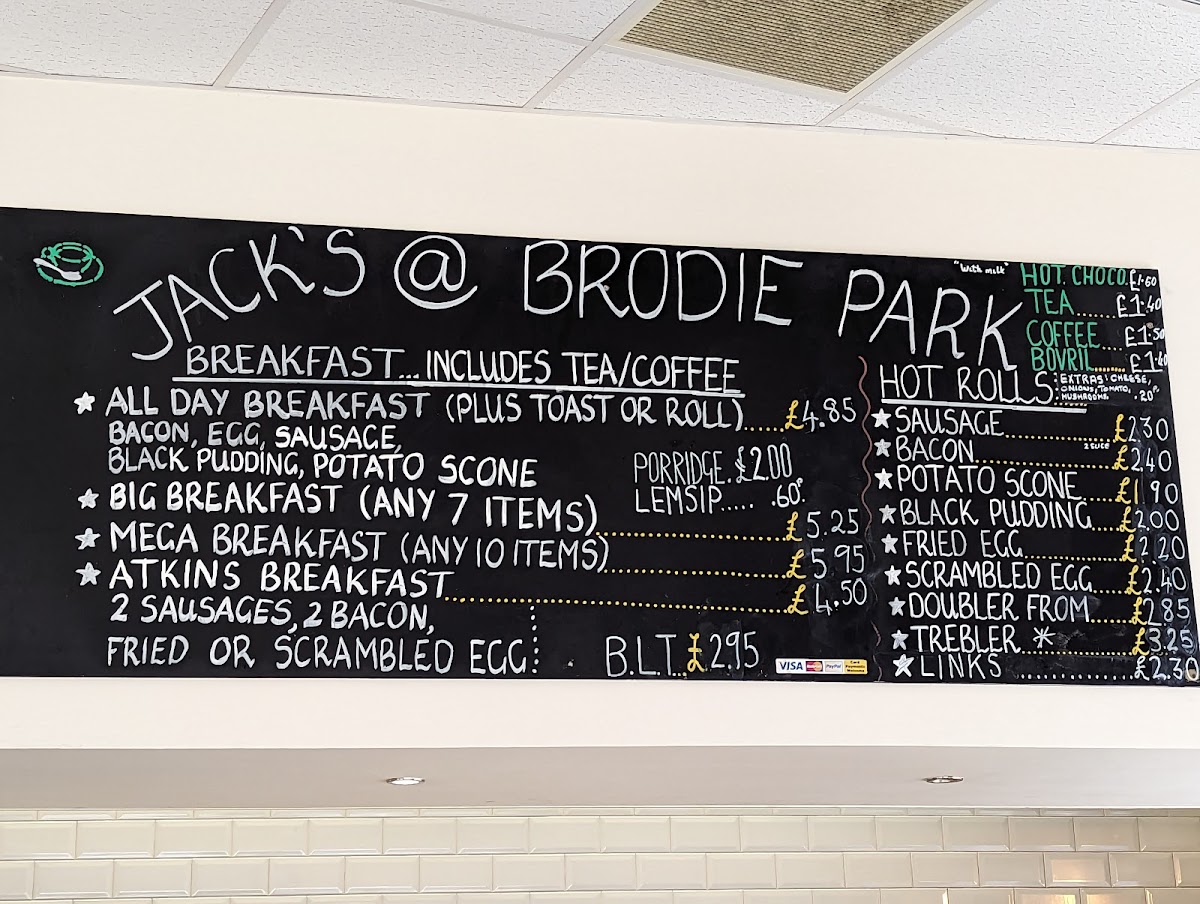 JACK'S @ BRODIE PARK
BREAKFAST... INCLUDES TEA/COFFEE
ALL DAY BREAKFAST (PLUS TOAST OR ROLL)......£4.85
BACON, EGG, SAUSAGE,
BLACK PUDDING, POTATO SCONE
PORRIDGE. £2.00
LEMSIP..... .60P.
BIG BREAKFAST (ANY 7 ITEMS)......£5.25
MEGA BREAKFAST (ANY 10 ITEMS)......£5.95
ATKINS BREAKFAST......£4.50
2 SAUSAGES, 2 BACON,
FRIED OR SCRAMBLED EGG
B.L.T...£2.95
VISA MasterCard PayPal
"With milk" HOT. CHOCO. £1.60
TEA......£1.40
COFFEE....£1.50
BOVRIL......£1.40
HOT ROLLS: EXTRAS: CHEESE,
ONIONS, TOMATO,
MUSHROOMS .20P
SAUSAGE......£2.30
BACON 2 SLICE......£2.40
POTATO SCONE......£1.90
BLACK PUDDING....£2.00
FRIED EGG......£2.20
SCRAMBLED EGG...£2.40
DOUBLER FROM....£2.85
TREBLER *......£3.25
LINKS......£2.30